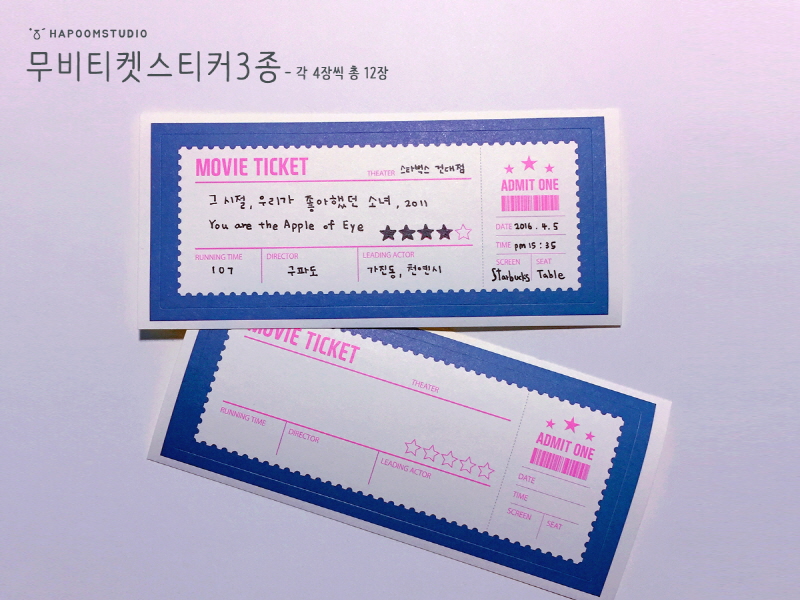 HAPOOMSTUDIO
무비티켓스티커3종 - 각 4장씩 총 12장
MOVIE TICKET
THEATER 스타벅스 건대점
그 시절, 우리가 좋아했던 소녀, 2011
You are the Apple of Eye
RUNNING TIME DIRECTOR LEADING ACTOR
107 구파도 가진동, 천옌시
ADMIT ONE
DATE 2016. 4. 5
TIME pm 15 : 35
SCREEN SEAT
Starbucks Table
MOVIE TICKET
THEATER
RUNNING TIME DIRECTOR LEADING ACTOR
ADMIT ONE
DATE
TIME
SCREEN SEAT